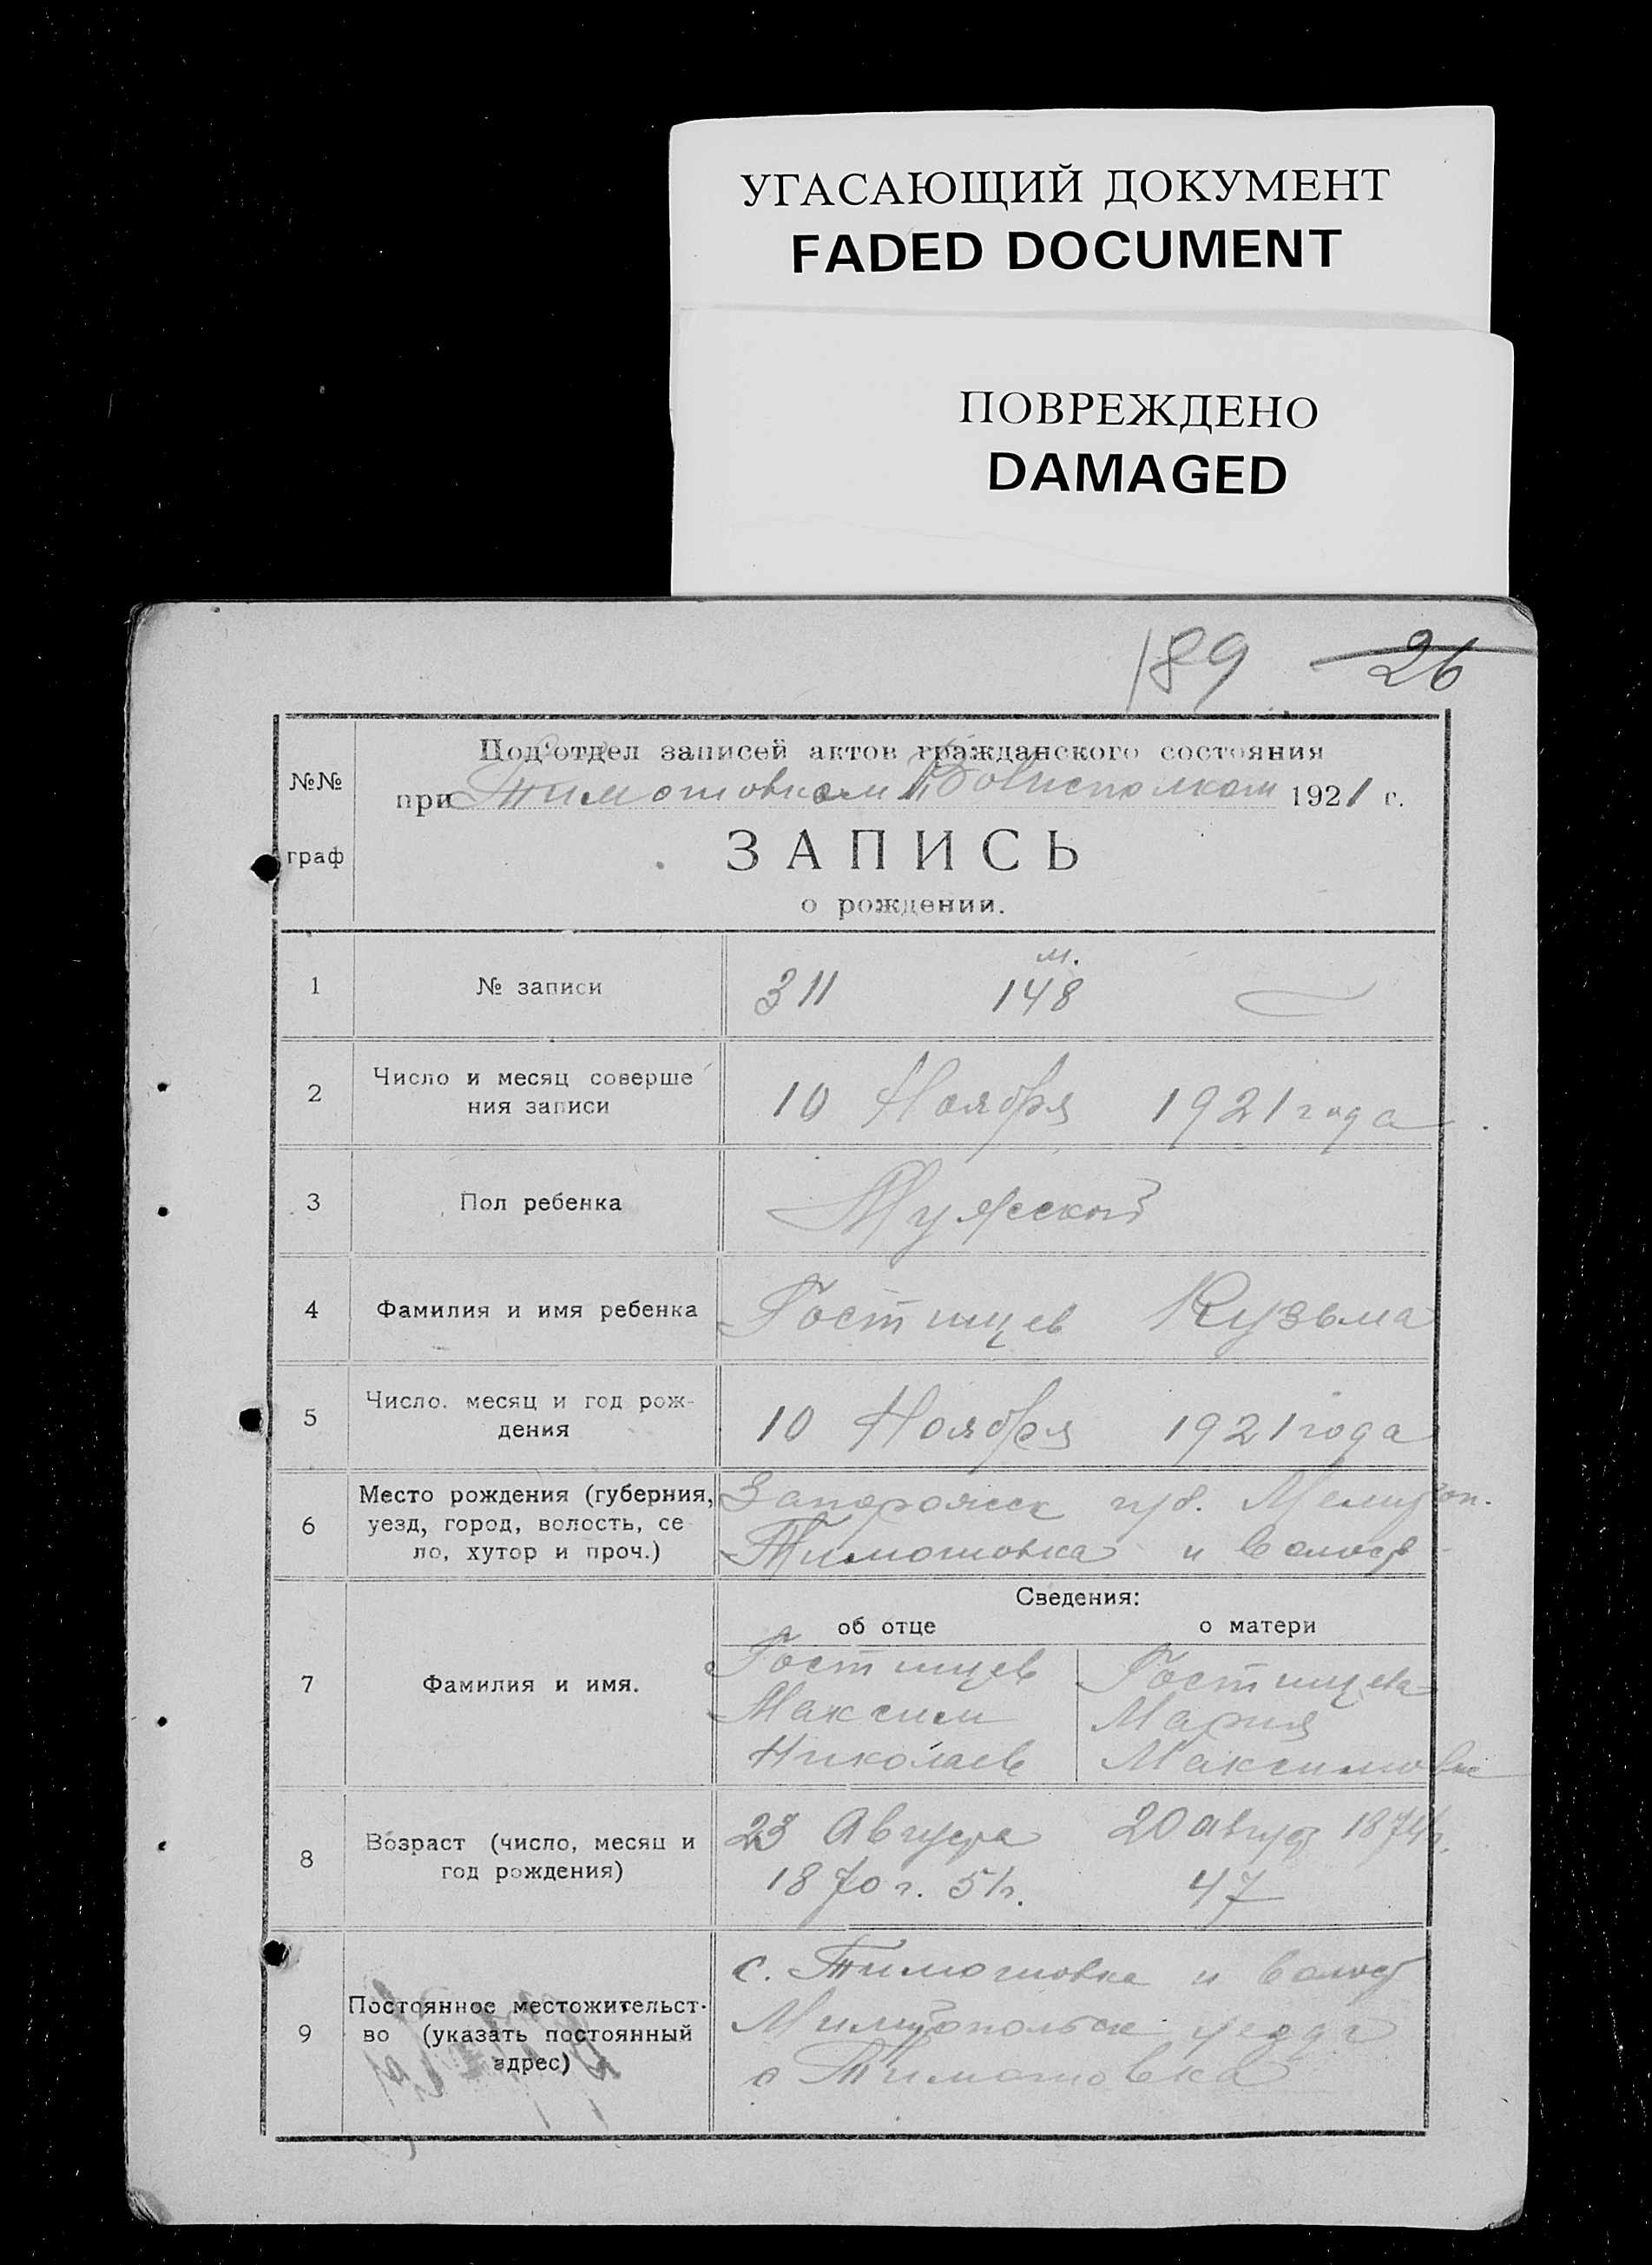 УГАСАЮЩИЙ ДОКУМЕНТ
FADED DOCUMENT
ПОВРЕЖДЕНО
DAMAGED
189 26
№№ граф
Под'отдел записей актов гражданского состояния
при Тимошовском Волисполкоме 1921 г.
ЗАПИСЬ
о рождении.
м.
1 № записи 311 148
2 Число и месяц соверше
ния записи 10 Ноября 1921 года
3 Пол ребенка Мужской
4 Фамилия и имя ребенка Гостищев Кузьма
5 Число. месяц и год рож-
дения 10 Ноября 1921 года
6 Место рождения (губерния, Запорожск губ. Мелитоп.
уезд, город, волость, се Тимошовка и волост
ло, хутор и проч.)
Сведения:
об отце о матери
7 Фамилия и имя. Гостищев Гостищева
Максим Мария
Николаев Максимовне
8 Возраст (число, месяц и 23 Августа 20 август 1874 г.
год рождения) 1870 г. 51 г. 47
с. Тимошовка и волост
9 Постоянное местожительст-
во (указать постоянный уезда
адрес) с Тимошовка